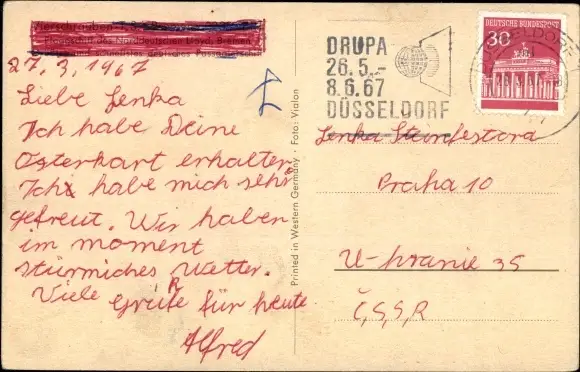 27.3.1967
Liebe Jenka
Ich habe Deine
Osterkart erhalten
Ich habe mich sehr
gefreut. Wir haben
im moment
stürmiches Wetter.
Viele Grüße für heute
Alfred
Printed in Western Germany · Foto: Vialon
DRUPA
26.5.-
8.6.67
DÜSSELDORF
30
DEUTSCHE BUNDESPOST
DÜSSELDORF
Jenka
Praha 10
U-hranie 35
Č,S,S,R